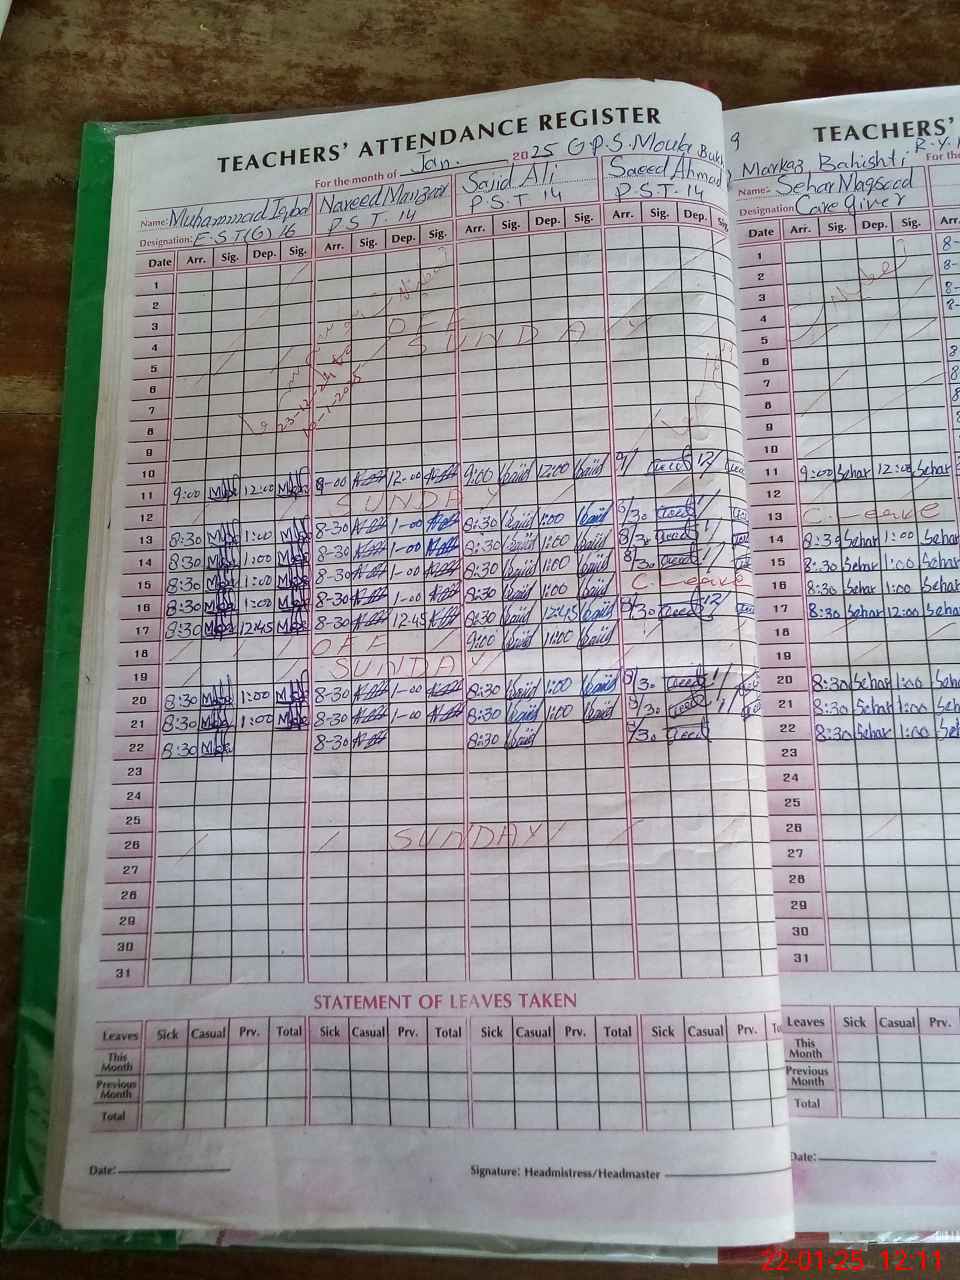 TEACHERS' ATTENDANCE REGISTER
For the month of Jan. 2025 G.P.S. Moula Bukh
Name: Muhammad Iqbal Naveed Manzoor Sajid Ali Saeed Ahmad
Designation: E.S.T(G) 16 P.S.T. 14 P.S.T 14 P.S.T. 14
Date Arr. Sig. Dep. Sig. Arr. Sig. Dep. Sig. Arr. Sig. Dep. Sig. Arr. Sig. Dep. Sig.
1
2
3 OFF
4
5 SUNDAY
6 23-12-24 to
7 10-1-2025
8
9
10
11 9:00 12:00 9-00 12-00 9:00 12:00 9/ 12/
12 SUNDAY
13 8:30 1:00 8-30 1-00 8:30 1:00 8/30 1/
14 8:30 1:00 8-30 1-00 8:30 1:00 8/30 1/
15 8:30 1:00 8-30 1-00 8:30 1:00 8/30 1/
16 8:30 1:00 8-30 1-00 8:30 1:00 C. Leave
17 8:30 12:45 8-30 12-45 8:30 12:45 8/30 12/
18 OFF 9:00 11:00
19 SUNDAY
20 8:30 1:00 8-30 1-00 8:30 1:00 8/30 1/
21 8:30 1:00 8-30 1-00 8:30 1:00 8/30 1/
22 8:30 8-30 8:30 8/30
23
24
25
26 SUNDAY
27
28
29
30
31
STATEMENT OF LEAVES TAKEN
Leaves Sick Casual Prv. Total Sick Casual Prv. Total Sick Casual Prv. Total Sick Casual Prv.
This Month
Previous Month
Total
Date:
Signature: Headmistress/Headmaster
9
TEACHERS'
Markaz Bahishti R.Y.
For the
Name: Sehar Maqsood
Designation Care giver
Date Arr. Sig. Dep. Sig. Arr.
1 8-
2 8-
3 8-
4 8-
5
6 8
7 8
8 8
9 8
10
11 9:00 Sehar 12:00 Sehar
12
13 C. Leave
14 8:30 Sehar 1:00 Sehar
15 8:30 Sehar 1:00 Sehar
16 8:30 Sehar 1:00 Sehar
17 8:30 Sehar 12:00 Sehar
18
19
20 8:30 Sehar 1:00 Sehar
21 8:30 Sehar 1:00 Sehar
22 8:30 Sehar 1:00
23
24
25
26
27
28
29
30
31
Leaves Sick Casual Prv.
This Month
Previous Month
Total
Date:
22-01-25 12:11